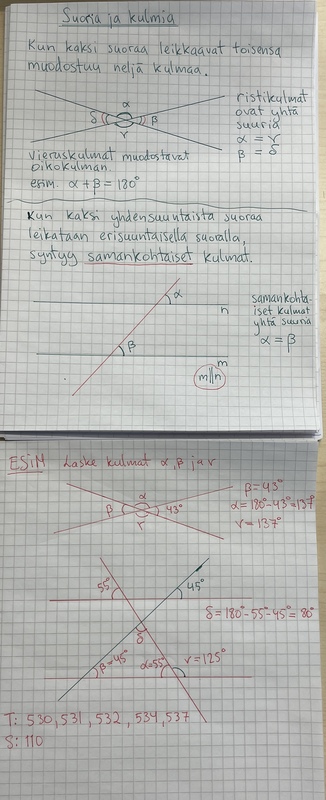 Suoria ja kulmia
Kun kaksi suoraa leikkaavat toisensa
muodostuu neljä kulmaa.
α
δ
β
γ
ristikulmat
ovat yhtä
suuria
α = γ
β = δ
Vieruskulmat muodostavat
oikokulman.
esim. α + β = 180°
Kun kaksi yhdensuuntaista suoraa
leikataan erisuuntaisella suoralla,
syntyy samankohtaiset kulmat.
α
n
β
m
m||n
samankohta-
iset kulmat
yhtä suuria
α = β
ESIM Laske kulmat α, β ja γ
α
β
43°
γ
β = 43°
α = 180° - 43° = 137°
γ = 137°
55°
45°
δ = 180° - 55° - 45° = 80°
δ
β = 45°
α = 55°
γ = 125°
T: 530, 531, 532, 534, 537
S: 110